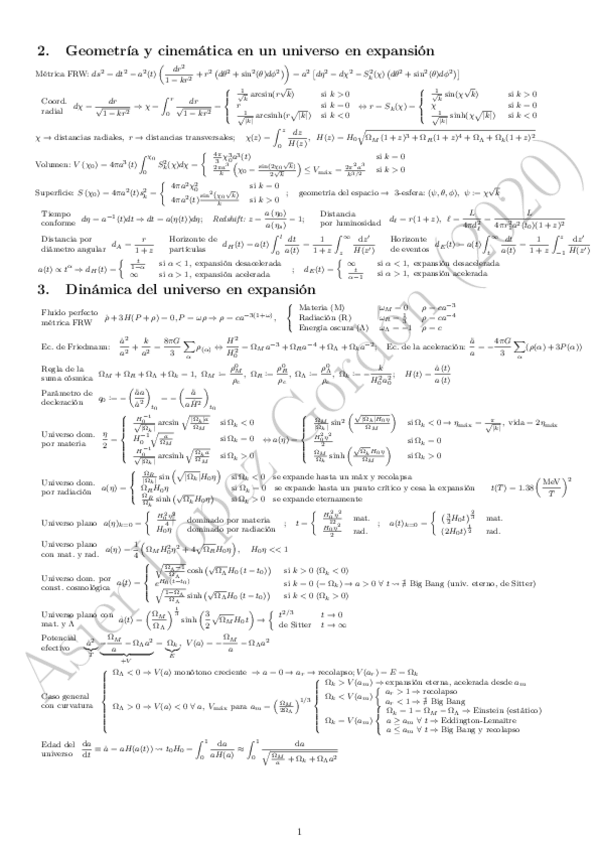 2. Geometría y cinemática en un universo en expansión
Métrica FRW: ds² = dt² − a²(t) ( dr²/(1 − kr²) + r² (dθ² + sin²(θ)dφ²) ) = a² [dη² − dχ² − S²ₖ(χ) (dθ² + sin²(θ)dφ²)]
Coord. radial dχ = dr/√(1 − kr²) ⇒ χ = ∫₀ʳ dr/√(1 − kr²) = { 1/√k arcsin(r√k) si k > 0
r si k = 0
1/√|k| arcsinh(r√|k|) si k < 0
⇔ r = Sₖ(χ) = { 1/√k sin(χ√k) si k > 0
χ si k = 0
1/√|k| sinh(χ√|k|) si k < 0
χ → distancias radiales, r → distancias transversales; χ(z) = ∫₀ᶻ dz/H(z), H(z) = H₀√(Ω_M(1 + z)³ + Ω_R(1 + z)⁴ + Ω_Λ + Ωₖ(1 + z)²)
Volumen: V(χ₀) = 4πa³(t) ∫₀^χ₀ S²ₖ(χ)dχ =
si k = 0
si k > 0
Superficie: S(χ₀) = 4πa²(t)
4πa²χ₀² si k = 0
si k > 0
; geometría del espacio → 3-esfera: (ψ, θ, φ), ψ := χ√k
Tiempo conforme dη = a⁻¹(t)dt ⇔ dt = a(η(t))dη; Redshift: z = a(η₀)/a(ηₐ) − 1;
Distancia por luminosidad d_ℓ = r(1 + z),
Distancia por diámetro angular d_A = r/(1 + z)
Horizonte de partículas d_H(t) = a(t) ∫₀ᵗ dt/a(t) = 1/(1 + z) ∫_z^∞ dz′/H(z′)
Horizonte de eventos
a(t) ∝ tᵅ ⇒ d_H(t) = { t/(1−α) si α < 1, expansión desacelerada
∞ si α > 1, expansión acelerada
; d_E(t) = { ∞ si α < 1, expansión desacelerada
si α > 1, expansión acelerada
3. Dinámica del universo en expansión
Fluido perfecto métrica FRW ρ̇ + 3H(P + ρ) = 0, P = ωρ ⇒ ρ = ca^(−3(1+ω)),
Materia (M) ω_M = 0 ρ = ca⁻³
Radiación (R) ρ = ca⁻⁴
Energía oscura (Λ) ω_Λ = −1 ρ = c
Ec. de Friedmann: ȧ²/a² + k/a² = 8πG/3 Σ ρ_(α) ⇔ H²/H₀² = Ω_M a⁻³ + Ω_R a⁻⁴ + Ω_Λ + Ωₖa⁻²; Ec. de la aceleración: ä/a = −4πG/3 Σ (ρ(a) + 3P(a))
Regla de la suma cósmica Ω_M + Ω_R + Ω_Λ + Ωₖ = 1,
H(t) = ȧ(t)/a(t)
Parámetro de decleración q₀ := −(äa/ȧ²)_t₀ = −(ä/aH²)_t₀
Universo dom. por materia
si Ωₖ < 0
si Ωₖ = 0
si Ωₖ > 0
Universo dom. por radiación a(η) =
si Ωₖ < 0 se expande hasta un máx y recolapsa
si Ωₖ = 0 se expande hasta un punto crítico y cesa la expansión
si Ωₖ > 0 se expande eternamente
t(T) = 1.38 (MeV/T)²
Universo plano a(η)ₖ₌₀ = { H₀²η²/4 dominado por materia
H₀η dominado por radiación
; t = { mat.
rad.
; a(t)ₖ₌₀ = { (3/2 H₀t)^(2/3) mat.
(2H₀t)^(1/2) rad.
Universo plano con mat. y rad. a(η) = 1/4 (Ω_M H₀²η² + 4√Ω_R H₀η), H₀η << 1
Universo dom. por const. cosmológica a(t) =
si k > 0 (Ωₖ < 0)
si k = 0 (univ. eterno, de Sitter)
si k < 0 (Ωₖ > 0)
Universo plano con mat. y Λ a(t) = (Ω_M/Ω_Λ)^(1/3) sinh^(2/3) (3/2 √Ω_Λ H₀t) → { t^(2/3) t → 0
de Sitter t → ∞
Potencial efectivo
V(a) = −Ω_M/a − Ω_Λa²
Caso general con curvatura
Ω_Λ < 0 ⇒ V(a) monótono creciente → a = 0 → aᵣ → recolapso; V(aᵣ) = E = Ωₖ
Ω_Λ > 0 ⇒ V(a) < 0 ∀ a, V_máx para a_m = (Ω_M/2Ω_Λ)^(1/3)
Ωₖ > V(a_m) ⇒ expansión eterna, acelerada desde a_m
Ωₖ < V(a_m) { aᵣ > 1 ⇒ recolapso
aᵣ < 1 ⇒ ∄ Big Bang
Ωₖ = V(a_m) { Ωₖ = 1 − Ω_M − Ω_Λ ⇒ Einstein (estático)
a ≥ a_m ∀ t ⇒ Eddington-Lemaître
a ≤ a_m ∀ t ⇒ Big Bang y recolapso
Edad del universo da/dt ≡ ȧ = aH(a(t)) ⇝ t₀H₀ = ∫₀¹ da/aH(a) ≈ ∫₀¹ da/√(Ω_M/a + Ωₖ + Ω_Λa²)
1